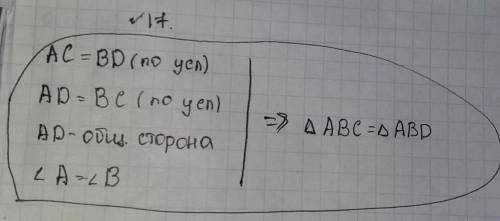 √17.
AC = BD (по усл)
AD = BC (по усл)
AD - общ. сторона
∠A = ∠B
=> △ABC = △ABD